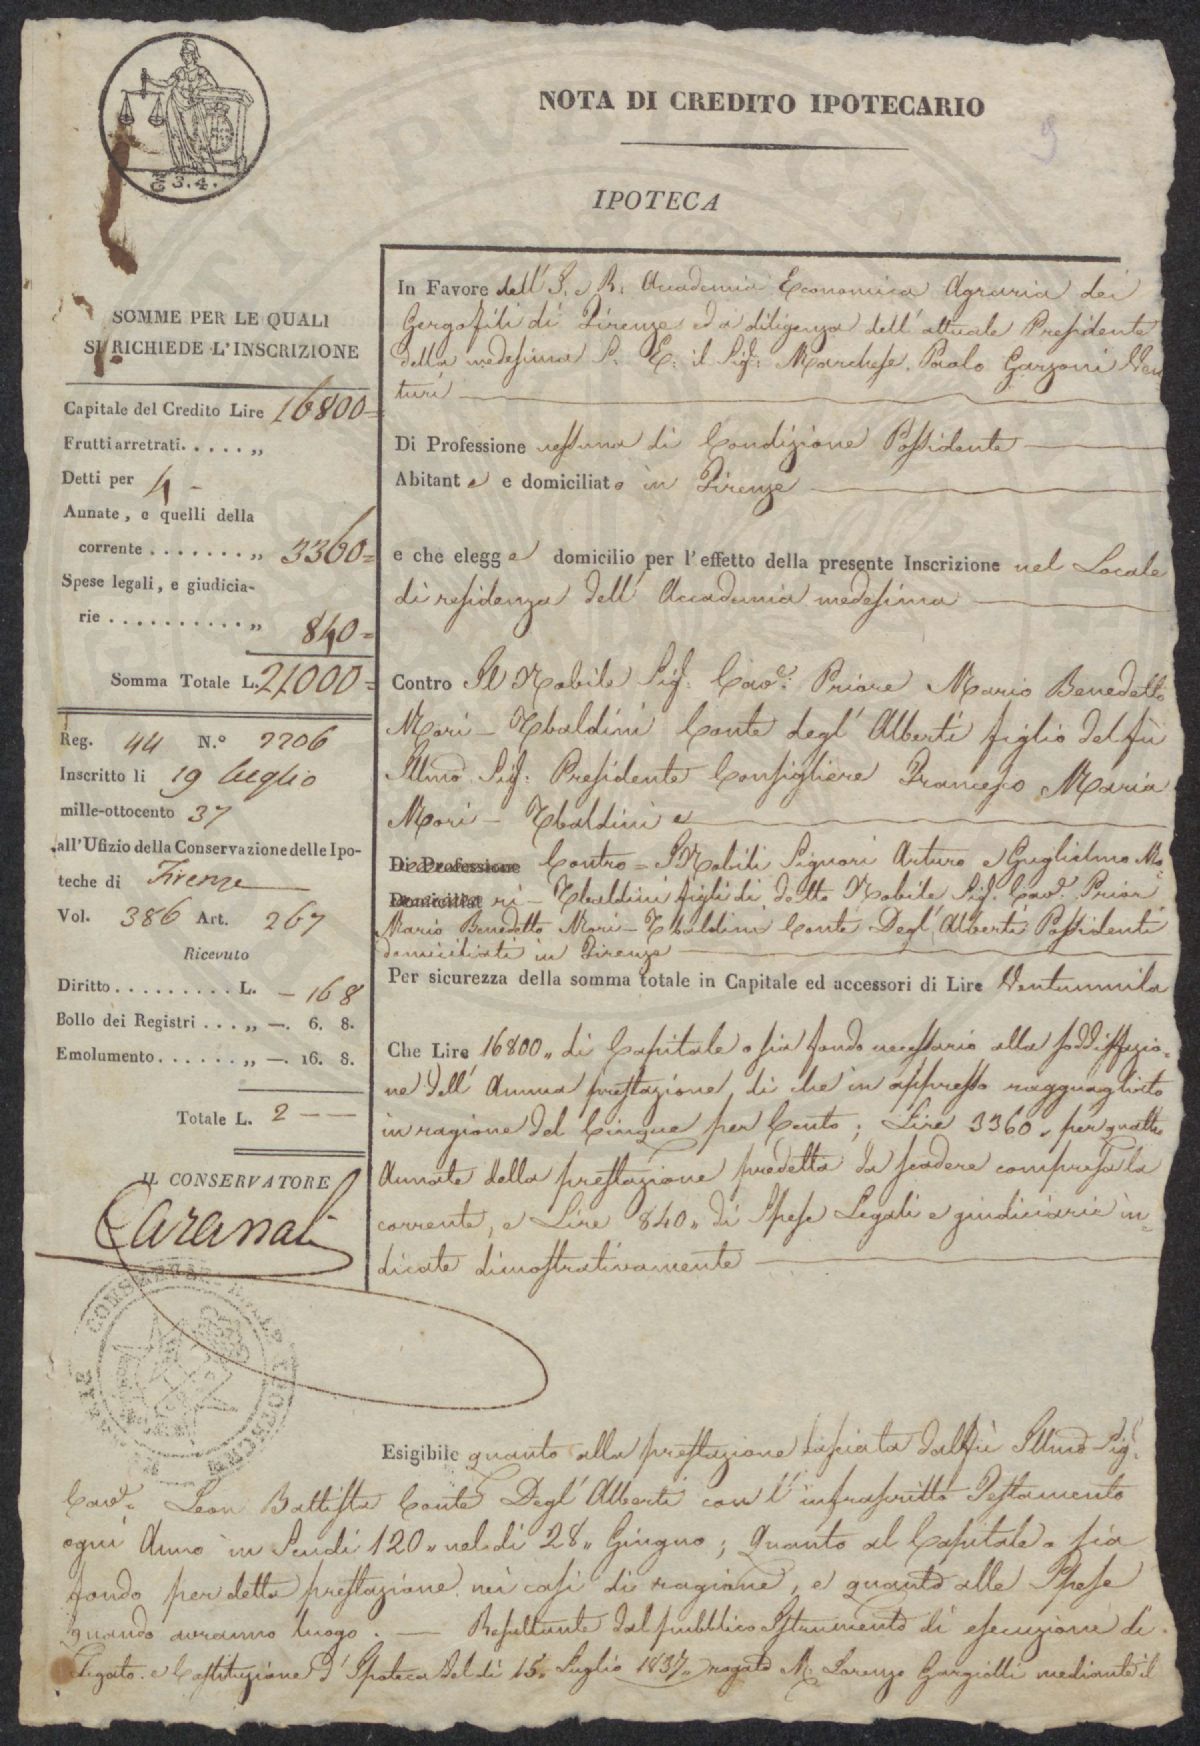 NOTA DI CREDITO IPOTECARIO
9
IPOTECA
S. 4.
SOMME PER LE QUALI
SI RICHIEDE L'INSCRIZIONE
Capitale del Credito Lire 16800=
Frutti arretrati. . . . . „
Detti per 4 -
Annate, e quelli della
corrente . . . . . . . „ 3360=
Spese legali, e giudicia-
rie . . . . . . . . . . „ 840=
Somma Totale L. 21000=
Reg. 44 N.° 2206
Inscritto li 19 luglio
mille-ottocento 37
all'Ufizio della Conservazione delle Ipo-
teche di Firenze
Vol. 386 Art. 267
Ricevuto
Diritto . . . . . . . . . L. - 16 8
Bollo dei Registri . . . „ —. 6. 8.
Emolumento . . . . . . „ —. 16. 8.
Totale L. 2 — —
IL CONSERVATORE
In Favore dell' I. e R. Accademia Economica Agraria dei
Gergofili di Firenze ed a diligenza dell' attuale Presidente
della medesima S. E. il Sig: Marchese Paolo Garzoni Ven
turi
Di Professione nessuna di Condizione Possidente
Abitante e domiciliato in Firenze
e che elegge domicilio per l'effetto della presente Inscrizione nel Locale
di residenza dell' Accademia medesima
Contro Il Nobile Sig. Cav.e Priore Mario Benedetto
Mori - Ubaldini Conte degl' Alberti figlio del fù
Illmo Sig: Presidente Consigliere Francesco Maria
Mori - Ubaldini e
Di Professione Contro = I Nobili Signori Arturo e Guglielmo Mo=
Domicilia ri - Ubaldini figli di detto Nobile Sig. Cav. Prior
Mario Benedetto Mori - Ubaldini Conte Degl' Alberti Possidenti
domiciliati in Firenze
Per sicurezza della somma totale in Capitale ed accessori di Lire Ventunmila
Che Lire 16800 „ di Capitale o sia fondo necessario alla soddisfazio-
ne dell' Annua prestazione, di che in appresso ragguagliato
in ragione del Cinque per Cento; Lire 3360 „ per quattro
Annate della prestazione predetta da scadere compresa la
corrente, e Lire 840 „ di Spese Legali e giudiciarie in-
dicate dimostrativamente
CONSERVAT. DELLE IPOTECHE
Esigibile quanto alla prestazione lasciata dal fù Illmo Sig.
Cav.e Leon Battista Conte Degl' Alberti con l' infrascritto Testamento
ogni Anno in Scudi 120 „ nel dì 28 „ Giugno; Quanto al Capitale o sia
fondo per detta prestazione nei casi di ragione, e quanto alle Spese
quando avranno luogo. — Resultante dal pubblico Istrumento di esecuzione di
Legato e Costituzione d' Ipoteca del dì 15 „ Luglio 1837 „ rogato M. Lorenzo Gargiolli mediante il